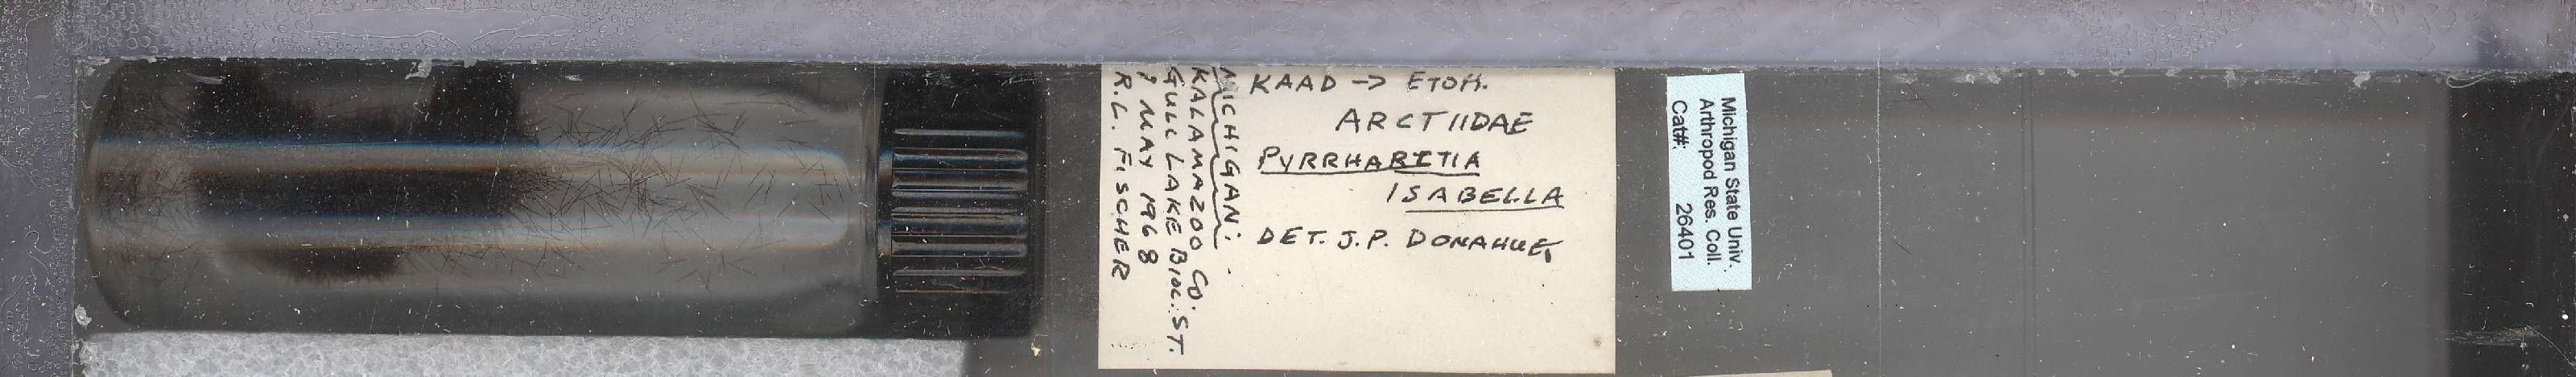 MICHIGAN:
KALAMAZOO CO.
GULL LAKE BIOL. ST.
? MAY 1968
R.L. FISCHER
KAAD -> ETOH.
ARCTIIDAE
PYRRHARCTIA
ISABELLA
DET. J.P. DONAHUE
Michigan State Univ.
Arthropod Res. Coll.
Cat#: 26401